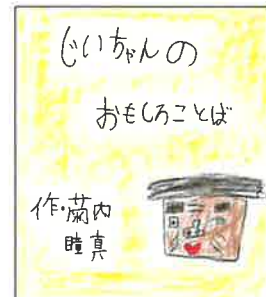 じいちゃんの
おもしろことば
作・菊内
瞳真